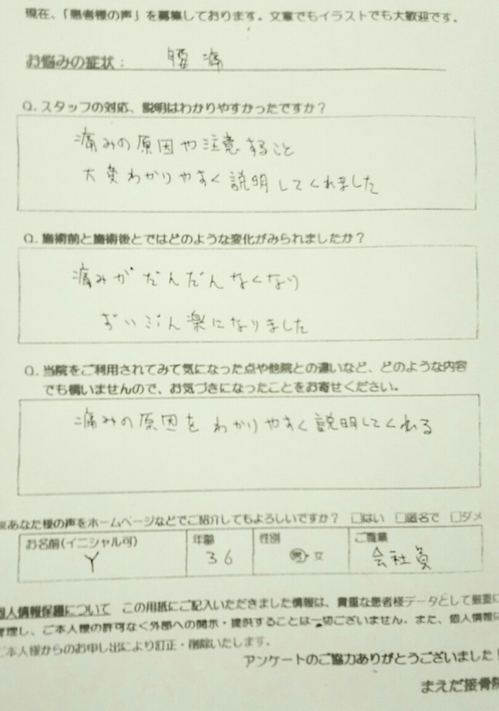 現在、「患者様の声」を募集しております。文章でもイラストでも大歓迎です。
お悩みの症状： 腰痛
Q. スタッフの対応、説明はわかりやすかったですか？
痛みの原因や注意すること
大変わかりやすく説明してくれました
Q. 施術前と施術後とではどのような変化がみられましたか？
痛みがだんだんなくなり
ずいぶん楽になりました
Q. 当院をご利用されてみて気になった点や他院との違いなど、どのような内容
でも構いませんので、お気づきになったことをお寄せください。
痛みの原因をわかりやすく説明してくれる
※あなた様の声をホームページなどでご紹介してもよろしいですか？ □はい □匿名で □ダメ
お名前(イニシャル可) 年齢 性別 ご職業
Y 36 男・女 会社員
個人情報保護について この用紙にご記入いただきました情報は、貴重な患者様データとして厳重に
管理し、ご本人様の許可なく外部への開示・提供することは一切ございません。また、個人情報は
ご本人様からのお申し出により訂正・削除いたします。
アンケートのご協力ありがとうございました！
まえだ接骨院